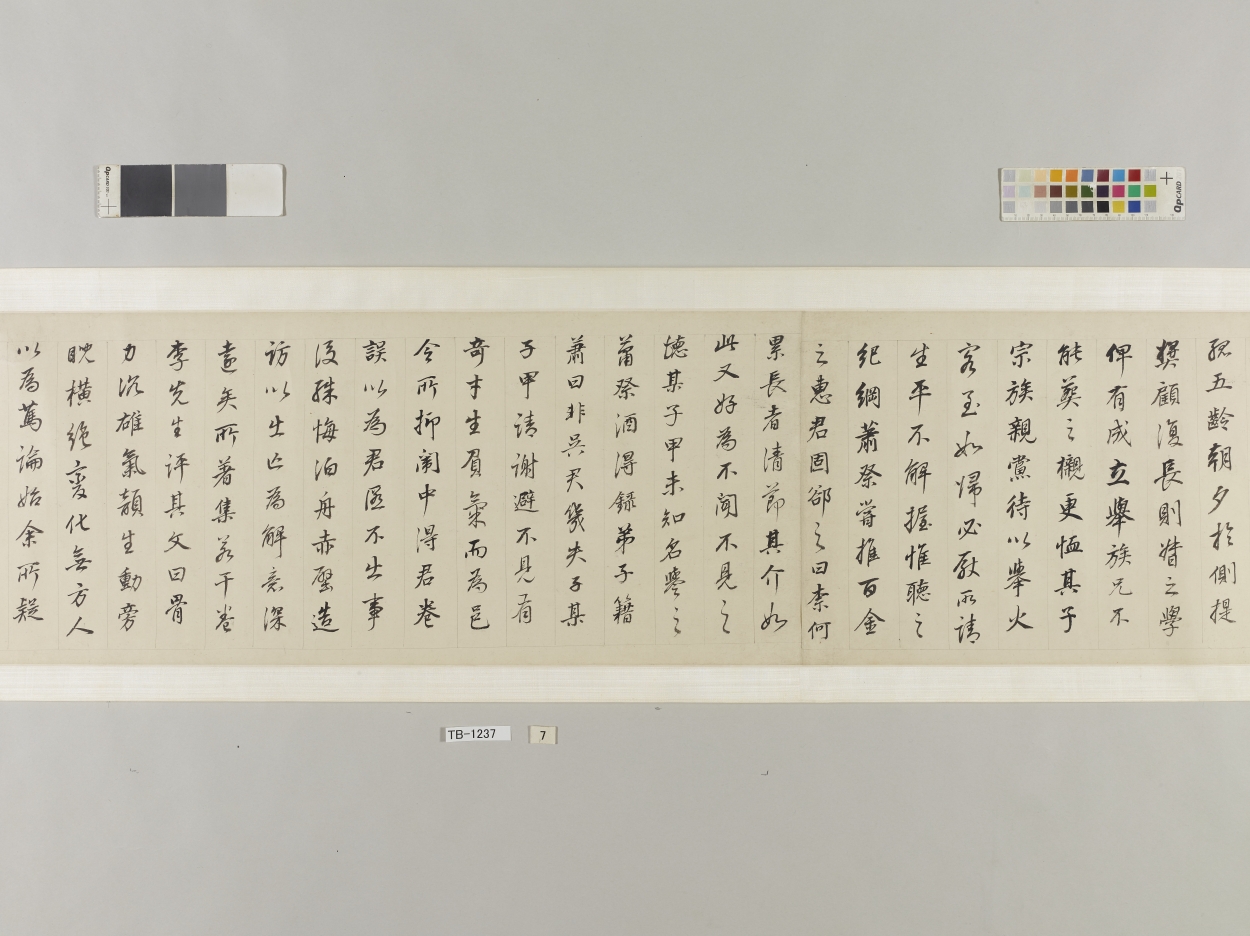 孤五齡朝夕於側提
撰顧復長則壻之學
俾有成立舉族兄不
能葬之櫬更恤其子
宗族親黨待以舉火
客至如歸必厭所請
生平不解握惟聽之
紀綱蕭祭嘗推百金
之惠君固郤之曰柰何
累長者清節其介如
此又好為不聞不見之
德某子甲未知名譽之
蕭祭酒淂錄弟子籍
蕭曰非吳君幾失子某
子甲請謝避不見有
奇才生眉氣而為邑
令所抑闈中淂君卷
誤以為君遂不出事
後殊悔泊舟赤壁造
訪以出亡為解意深
遠矣所著集若干卷
李先生評其文曰骨
力沉雄氣韻生動旁
睨橫絕變化無方人
以為篤論始余所疑
TB-1237
7
QPCARD
QPCARD